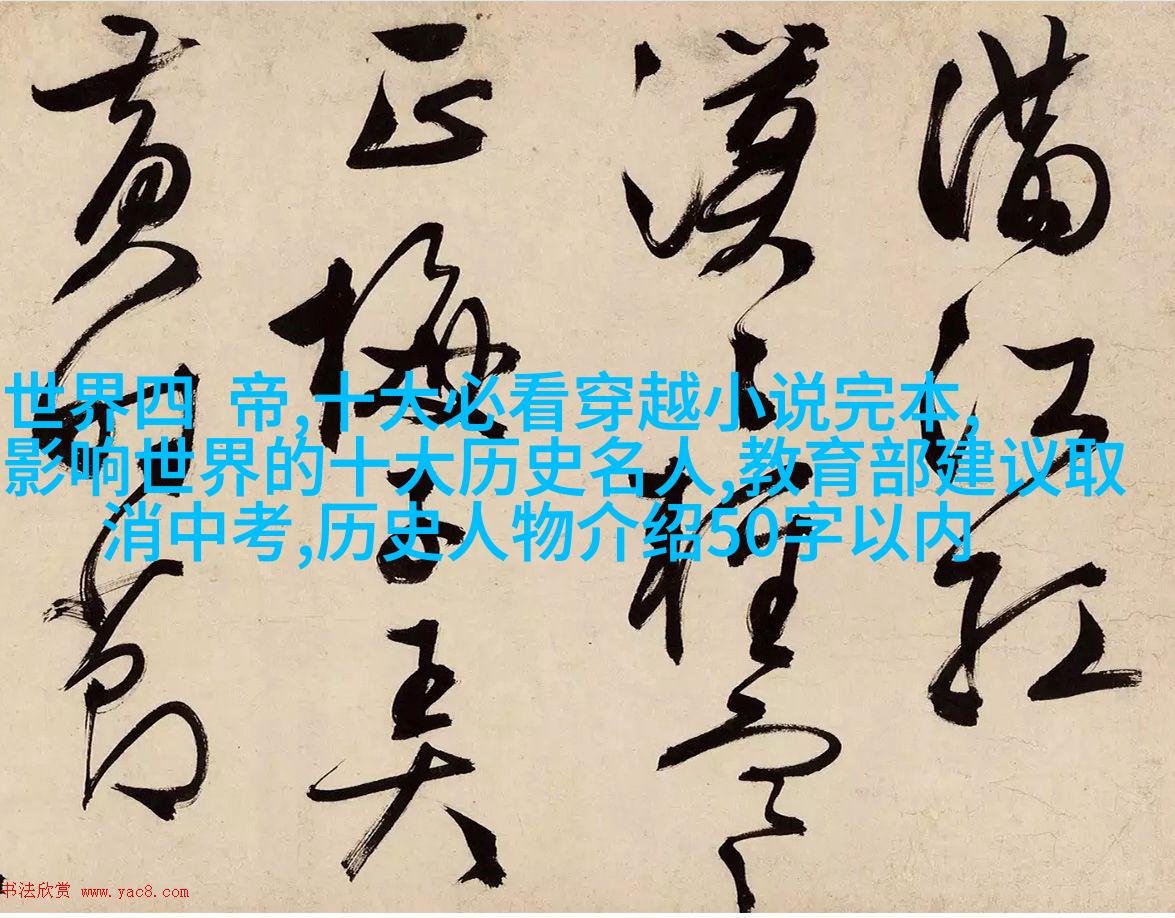 滿江紅
漠〻輕
正梅子弄
黃時節
世界四 帝,十大必看穿越小说完本,
影响世界的十大历史名人,教育部建议取
消中考,历史人物介绍50字以内
书法欣赏 www.yac8.com